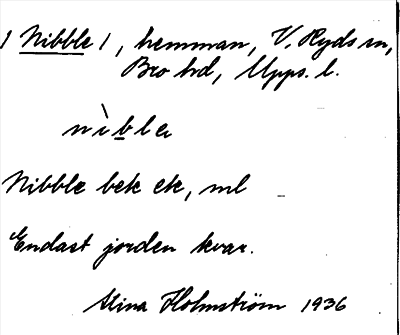 1 Nibble 1, hemman, V. Ryds sn,
Bro hd, Upps. l.
nìb̲la
Nibble bek ek, ml
Endast jorden kvar.
Stina Holmström 1936